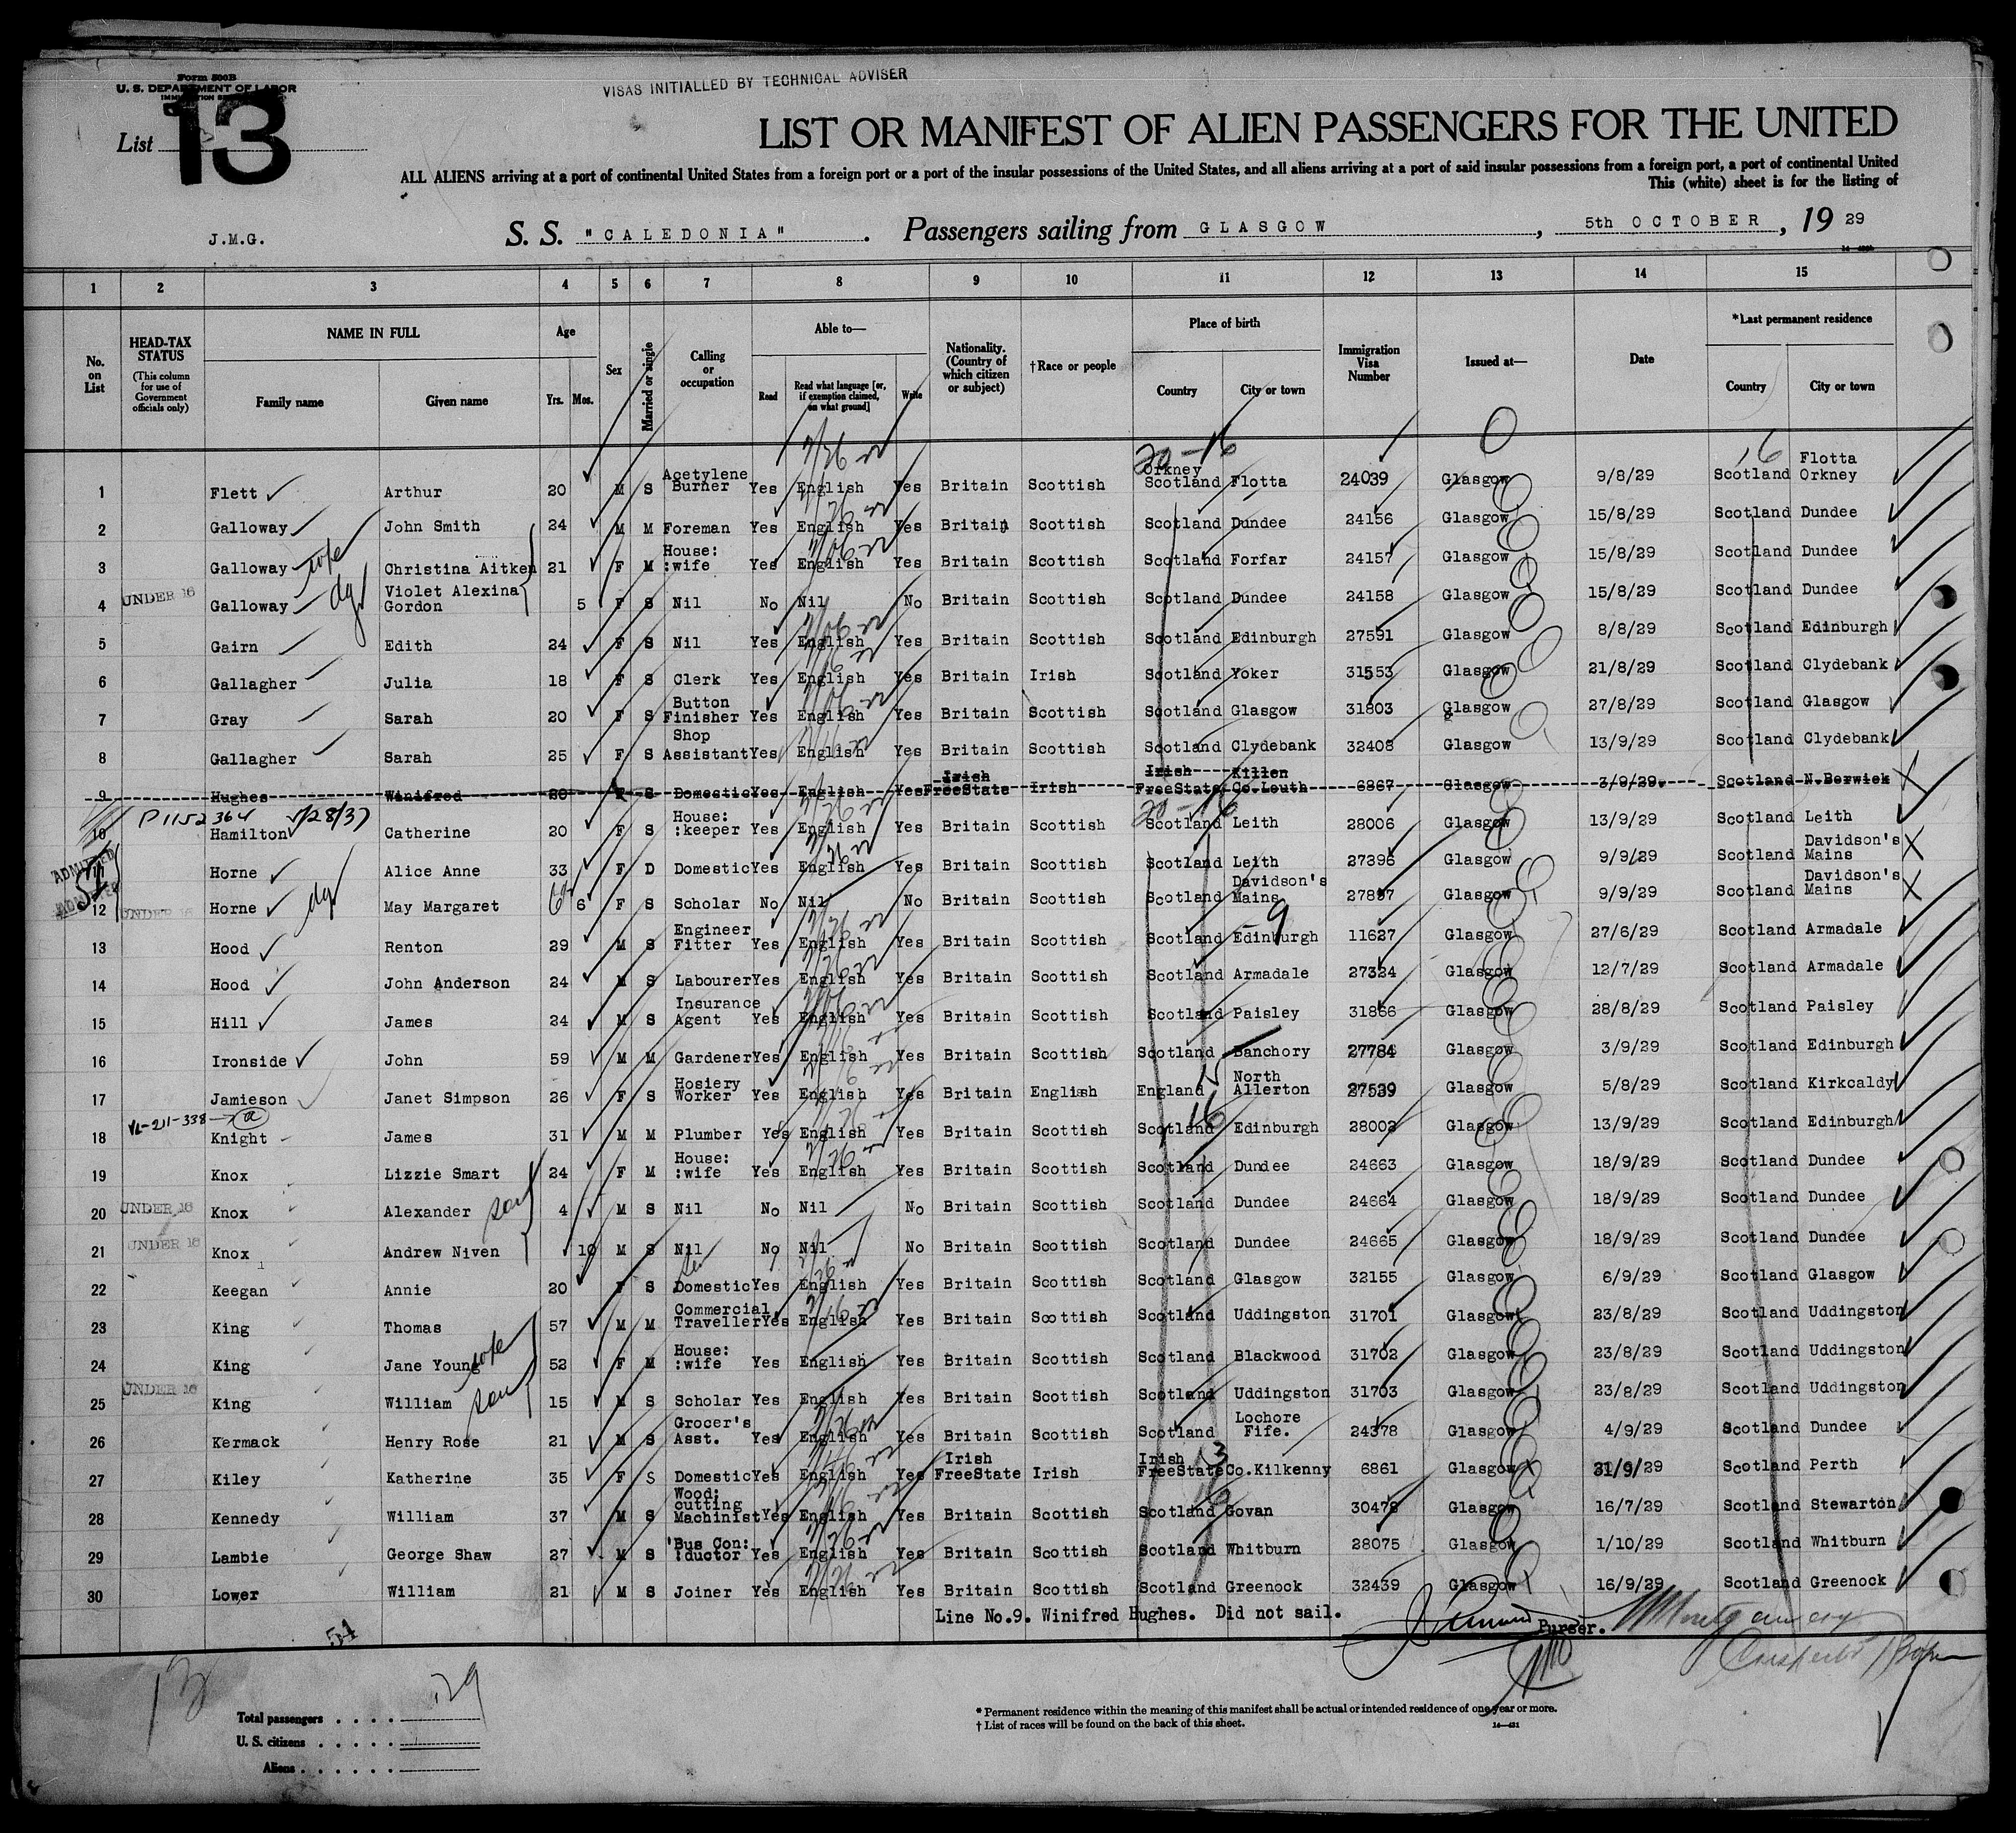 Form 500B
U. S. DEPARTMENT OF LABOR
VISAS INITIALLED BY TECHNICAL ADVISER
List 13
LIST OR MANIFEST OF ALIEN PASSENGERS FOR THE UNITED
ALL ALIENS arriving at a port of continental United States from a foreign port or a port of the insular possessions of the United States, and all aliens arriving at a port of said insular possessions from a foreign port, a port of continental United
This (white) sheet is for the listing of
J.M.G. S. S. "CALEDONIA". Passengers sailing from GLASGOW, 5th OCTOBER, 19 29
1 2 3 4 5 6 7 8 9 10 11 12 13 14 15
No. on List
HEAD-TAX STATUS (This column for use of Government officials only)
NAME IN FULL
Family name Given name
Age Yrs. Mos.
Sex
Married or single
Calling or occupation
Able to—
Read Read what language [or, if exemption claimed, on what ground] Write
Nationality. (Country of which citizen or subject)
†Race or people
Place of birth
Country City or town
Immigration Visa Number
Issued at—
Date
*Last permanent residence
Country City or town
20-16
1 Flett Arthur 20 M S Acetylene Burner Yes English Yes Britain Scottish Orkney Scotland Flotta 24039 Glasgow 9/8/29 Scotland Flotta Orkney
2 Galloway John Smith 24 M M Foreman Yes English Yes Britain Scottish Scotland Dundee 24156 Glasgow 15/8/29 Scotland Dundee
3 Galloway wife Christina Aitken 21 F M House: :wife Yes English Yes Britain Scottish Scotland Forfar 24157 Glasgow 15/8/29 Scotland Dundee
4 UNDER 16 Galloway dgt Violet Alexina Gordon 5 F S Nil No Nil No Britain Scottish Scotland Dundee 24158 Glasgow 15/8/29 Scotland Dundee
5 Gairn Edith 24 F S Nil Yes English Yes Britain Scottish Scotland Edinburgh 27591 Glasgow 8/8/29 Scotland Edinburgh
6 Gallagher Julia 18 F S Clerk Yes English Yes Britain Irish Scotland Yoker 31553 Glasgow 21/8/29 Scotland Clydebank
7 Gray Sarah 20 F S Button Finisher Yes English Yes Britain Scottish Scotland Glasgow 31803 Glasgow 27/8/29 Scotland Glasgow
8 Gallagher Sarah 25 F S Shop Assistant Yes English Yes Britain Scottish Scotland Clydebank 32408 Glasgow 13/9/29 Scotland Clydebank
9 Hughes Winifred 20 F S Domestic Yes English Yes Irish FreeState Irish Irish FreeState Killen Co.Louth 6867 Glasgow 3/9/29. Scotland N.Berwick
P1152364 1/28/37
20-16
10 Hamilton Catherine 20 F S House: :keeper Yes English Yes Britain Scottish Scotland Leith 28006 Glasgow 13/9/29 Scotland Leith
ADMITTED
11 Horne Alice Anne 33 F D Domestic Yes English Yes Britain Scottish Scotland Leith 27396 Glasgow 9/9/29 Scotland Davidson's Mains
12 UNDER 16 Horne dgt May Margaret 6 F S Scholar No Nil No Britain Scottish Scotland Davidson's Mains 27897 Glasgow 9/9/29 Scotland Davidson's Mains
13 Hood Renton 29 M S Engineer Fitter Yes English Yes Britain Scottish Scotland Edinburgh 11627 Glasgow 27/6/29 Scotland Armadale
14 Hood John Anderson 24 M S Labourer Yes English Yes Britain Scottish Scotland Armadale 27324 Glasgow 12/7/29 Scotland Armadale
15 Hill James 24 M S Insurance Agent Yes English Yes Britain Scottish Scotland Paisley 31866 Glasgow 28/8/29 Scotland Paisley
16 Ironside John 59 M M Gardener Yes English Yes Britain Scottish Scotland Banchory 27784 Glasgow 3/9/29 Scotland Edinburgh
17 Jamieson Janet Simpson 26 F S Hosiery Worker Yes English Yes Britain English England North Allerton 27539 Glasgow 5/8/29 Scotland Kirkcaldy
VL-211-338
18 Knight James 31 M M Plumber Yes English Yes Britain Scottish Scotland Edinburgh 28002 Glasgow 13/9/29 Scotland Edinburgh
19 Knox Lizzie Smart 24 F M House: :wife Yes English Yes Britain Scottish Scotland Dundee 24663 Glasgow 18/9/29 Scotland Dundee
20 UNDER 16 Knox Alexander son 4 M S Nil No Nil No Britain Scottish Scotland Dundee 24664 Glasgow 18/9/29 Scotland Dundee
21 UNDER 16 Knox Andrew Niven 10 M S Nil No Nil No Britain Scottish Scotland Dundee 24665 Glasgow 18/9/29 Scotland Dundee
22 Keegan Annie 20 F S Domestic Yes English Yes Britain Scottish Scotland Glasgow 32155 Glasgow 6/9/29 Scotland Glasgow
23 King Thomas 57 M M Commercial Traveller Yes English Yes Britain Scottish Scotland Uddingston 31701 Glasgow 23/8/29 Scotland Uddingston
24 King Jane Young wife 52 F M House: :wife Yes English Yes Britain Scottish Scotland Blackwood 31702 Glasgow 23/8/29 Scotland Uddingston
25 UNDER 16 King William son 15 M S Scholar Yes English Yes Britain Scottish Scotland Uddingston 31703 Glasgow 23/8/29 Scotland Uddingston
26 Kermack Henry Rose 21 M S Grocer's Asst. Yes English Yes Britain Scottish Scotland Lochore Fife. 24378 Glasgow 4/9/29 Scotland Dundee
27 Kiley Katherine 35 F S Domestic Yes English Yes Irish FreeState Irish Irish FreeState Co.Kilkenny 6861 Glasgow 31/8/29 Scotland Perth
28 Kennedy William 37 M S Wood: cutting Machinist Yes English Yes Britain Scottish Scotland Govan 30478 Glasgow 16/7/29 Scotland Stewarton
29 Lambie George Shaw 27 M S 'Bus Con: :ductor Yes English Yes Britain Scottish Scotland Whitburn 28075 Glasgow 1/10/29 Scotland Whitburn
30 Lower William 21 M S Joiner Yes English Yes Britain Scottish Scotland Greenock 32439 Glasgow 16/9/29 Scotland Greenock
Line No.9. Winifred Hughes. Did not sail.
Purser.
54
Total passengers . . . . 29
U. S. citizens . . . . .
Aliens . . . . . .
* Permanent residence within the meaning of this manifest shall be actual or intended residence of one year or more.
† List of races will be found on the back of this sheet.